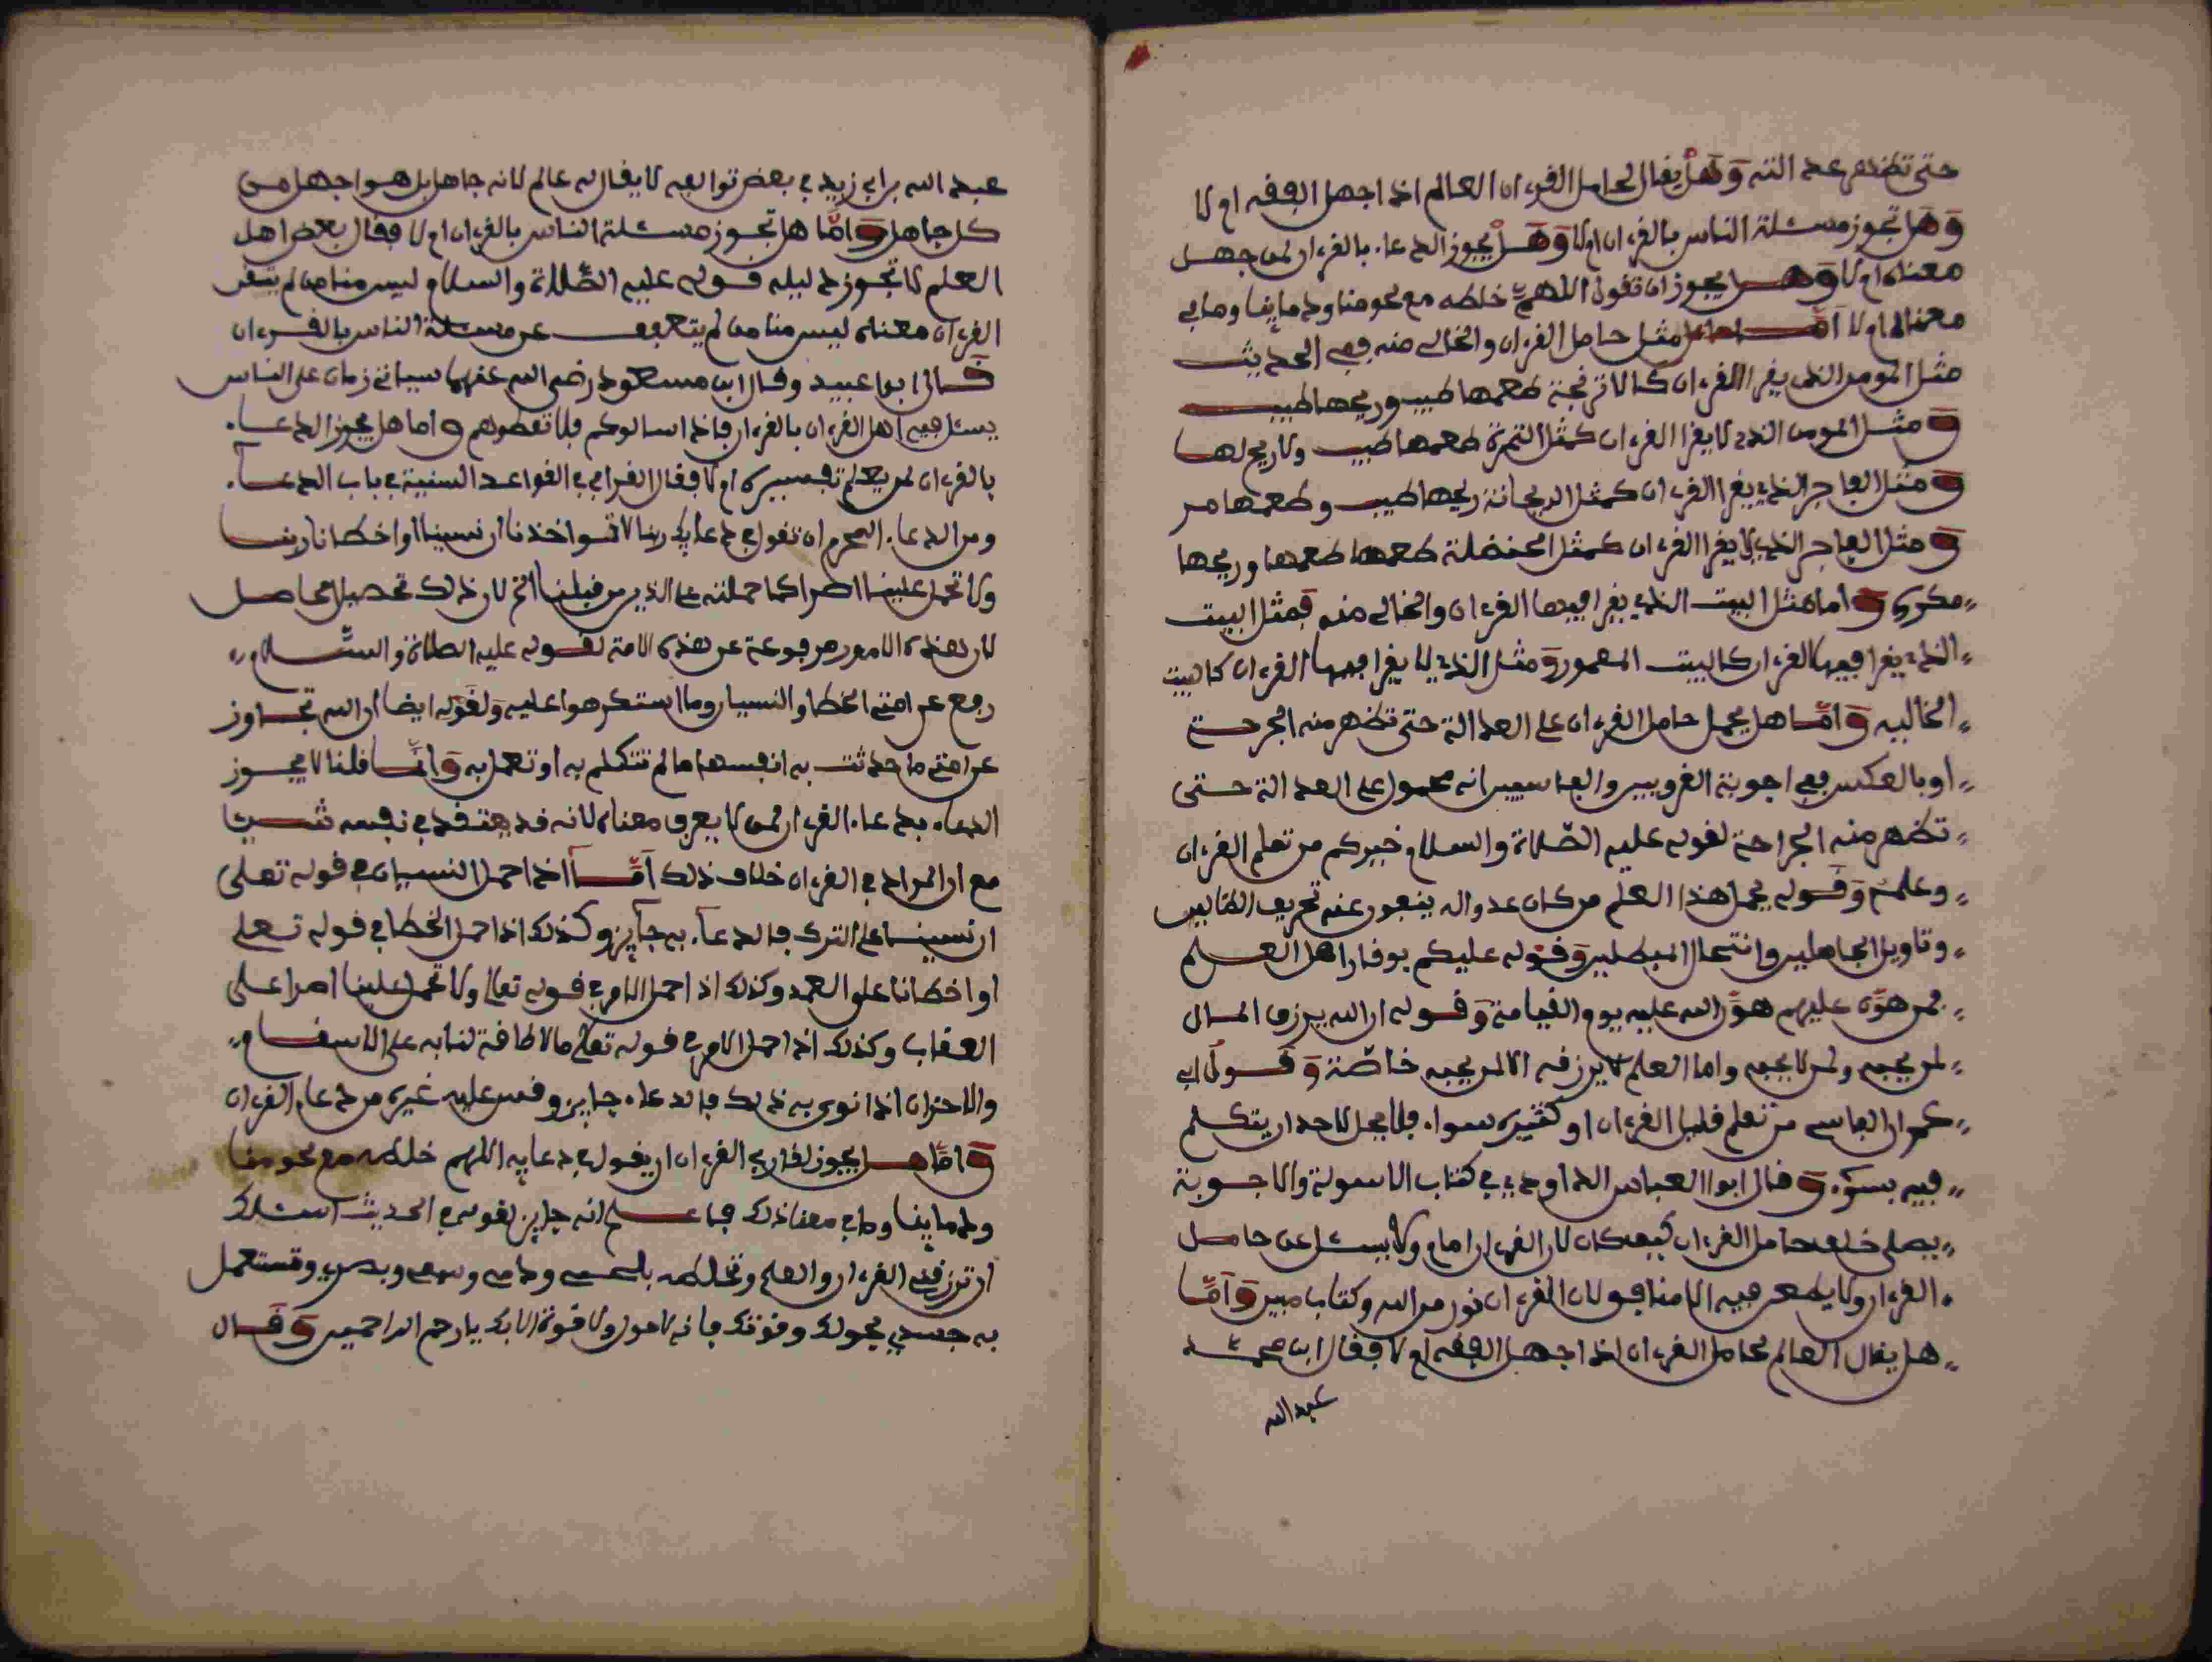 حتى تظهر عدالته وهل يقال لحامل القرءان العالم اذا جهل الفقه ام لا
وهل تجوز مسئلة الناس بالقرءان ام لا وهل يجوز الدعاء بالقرءان لمن جهل
معناه ام لا وهل يجوز ان تقول اللهم خلطه مع لحومنا ودماينا وما في
معناه ام لا اما مثل حامل القرءان والخالي منه ففي الحديث
مثل المومن الذي يقرا القرءان كالاترنجة طعمها طيب وريحها طيب
ومثل المومن الذي لا يقرا القرءان كمثل التمرة طعمها طيب ولا ريح لها
ومثل الفاجر الذي يقرا القرءان كمثل الريحانة ريحها طيب وطعمها مر
ومثل الفاجر الذي لا يقرا القرءان كمثل الحنضلة طعمها طعمها وريحها
واما مثل البيت الذي يقرا فيها القرءان والخالي منه فمثل البيت
الذي يقرا فيها القرءان كالبيت المعمور ومثل الذي لا يقرا فيها القرءان كالبيت
الخاليه واما هل يحمل حامل القرءان على العدالة حتى تظهر منه الجرحة
او بالعكس ففي اجوبة القرويين والفاسيين انه محمول على العدالة حتى
تظهر منه الجراحة لقوله عليه الصلاة والسلام خيركم من تعلم القرءان
وعلمه وقوله يحمل هذا العلم من كان عدواله ينفون عنه تحريف
وتاويل الجاهلين وانتحال المبطلين وقوله عليكم بوقار اهل العلم
فمن هون عليهم هون الله عليه يوم القيامة وقوله ان الله يرزق المال
لمن يحبه ولمن لا يحبه واما العلم لا يرزقه الا لمن يحبه خاصة وقول ابي
عمران الفاسي من تعلم قليل القرءان او كثيره سواء فلا يحل لاحد ان يتكلم
فيه بسوء وقال ابوا العباس الداودي في كتاب الاسولة والاجوبة
يصلى خلف حامل القرءان كيف كان لان القرءان امام ولا يسئل عن حامل
القرءان ولا يطعن فيه الا منافق لان القرءان نور من الله وكتاب مبين واما
هل يقال العالم لحامل القرءان اذا جهل الفقه ام لا فقال ابن محمد
عبد الله
عبد الله بن ابي زيد في بعض تواليفه لا يقال له عالم لانه جاهل بل هو اجهل من
كل جاهل واما هل تجوز مسئلة الناس بالقرءان ام لا فقال بعض اهل
العلم لا تجوز دليله قوله عليه الصلاة والسلام ليس منا من لم يتغن
القرءان معناه ليس منا من لم يتعفف عن مسئلة الناس بالقرءان
قال ابوا عبيد وقال ابن مسعود رضي الله عنهما سياتي زمان على الناس
يسئل فيه اهل القرءان بالقرءان فاذا سالوكم فلا تعطوهم واما هل يجوز الدعاء
بالقرءان لمن يعلم تفسيره ام لا فقال القرافي في القواعد السنية في باب الدعاء
ومن الدعاء المحرم ان تقول في دعايك ربنا لا تواخذنا ان نسينا او اخطانا ربنا
ولا تحمل علينا اصرا كما حملته على الذين من قبلنا الخ لان ذلك تحصيل الحاصل
لان هذه الامور مرفوعة عن هذه الامة لقوله عليه الصلاة والسلام
رفع عن امتي الخطا والنسيان وما استكرهوا عليه ولقوله ايضا ان الله تجاوز
عن امتي ما حدثت به انفسها ما لم تتكلم به او تعمل به وانما قلنا لا يجوز
الدعاء بدعاء القرءان لمن لا يعرف معناه لانه قد يعتقد في نفسه شيئا
مع ان المراد في القرءان خلاف ذلك اما اذا حمل النسيان في قوله تعلى
ان نسينا على الترك فالدعاء به جايز وكذلك اذا حمل الخطا في قوله تعلى
او اخطانا على العمد وكذلك اذا حمل الامر في قوله تعالى ولا تحمل علينا اصرا على
العقاب وكذلك اذا حمل الامر في قوله تعلى ما لا طاقة لنا به على الاسقام
والاحزان اذا نوى به ذلك فالدعاء جايز وقس عليه غيره من دعاء القرءان
واما هل يجوز لقارئ القرءان ان يقول في دعايه اللهم خلطه مع لحومنا
ودماينا وما في معنا ذلك فاعلم انه جايز لقوله في الحديث اسئلك
ان ترزقني القرءان والعلم وتخلطه بلحمي ودمي وسمعي وبصري وتستعمل
به جسدي بحولك وقوتك فانه لا حول ولا قوة الا بك يا ارحم الراحمين وقال